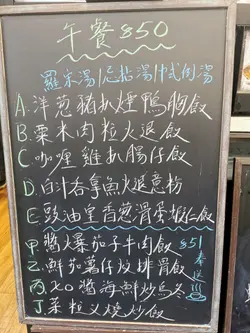 午餐850
羅宋湯/忌招湯/中式例湯
A.洋葱豬扒煙鴨胸飯
B.粟米肉粒火腿飯
C.咖喱雞扒腸仔飯
D.白汁吞拿魚火腿意粉
E.豉油皇香葱滑蛋蝦仁飯
甲醬爆茄子牛肉飯 851
乙鮮茄薯仔炆排骨飯 奉送
丙XO醬海鮮炒烏冬
丁菜粒叉燒炒飯